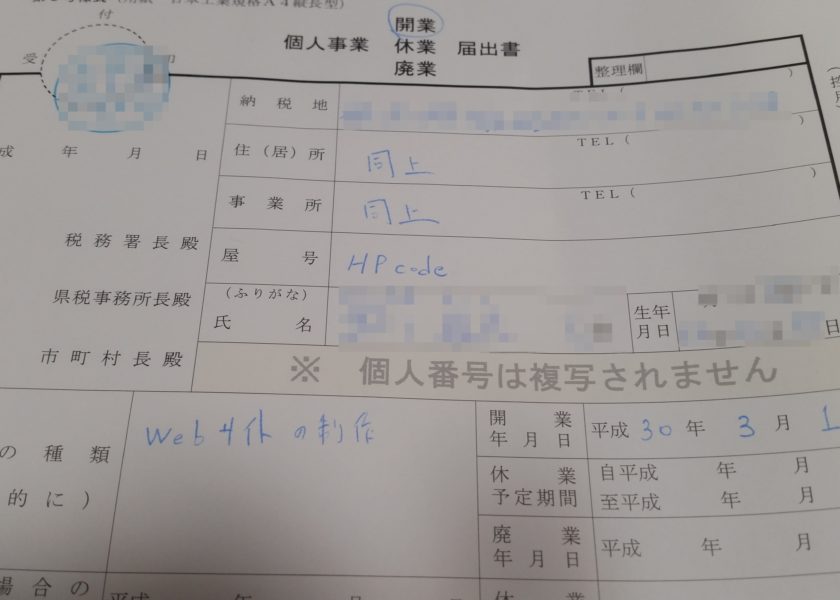 付
受
印
開業
個人事業 休業 届出書
廃業
整理欄
納税地
TEL(
)
成 年 月 日
住(居)所
同上
TEL(
)
事業所
同上
TEL(
)
税務署長殿
屋号
HPcode
県税事務所長殿
(ふりがな)
氏名
生年
月日
日
市町村長殿
※ 個人番号は複写されません
の種類
的に)
Webサイトの制作
開業
年月日
平成30年3月1
休業
予定期間
自平成 年 月
至平成 年 月
廃業
年月日
平成 年 月
場合の
平成 年 月